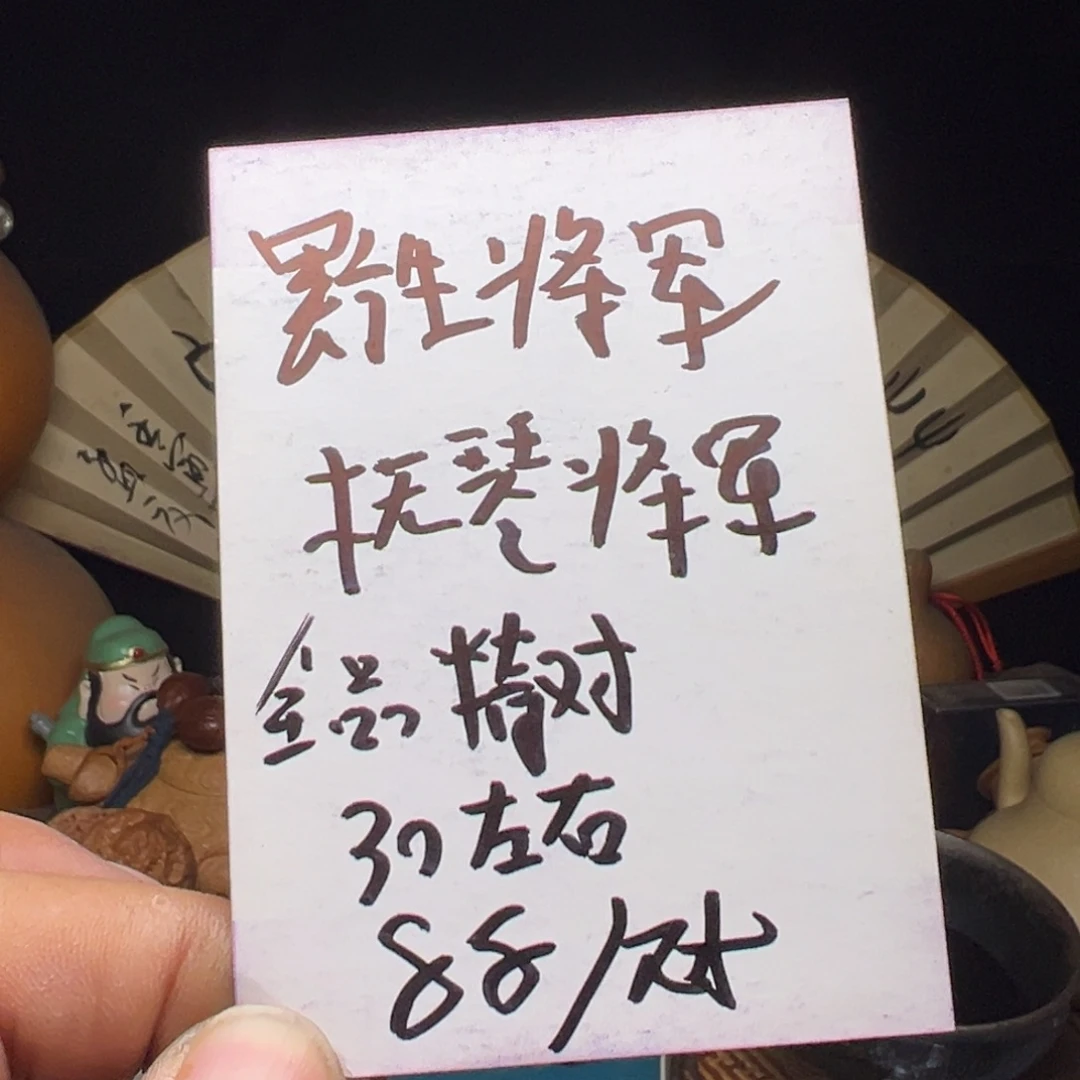 野生将军
抚琴将军
全品精对
37左右
88/对